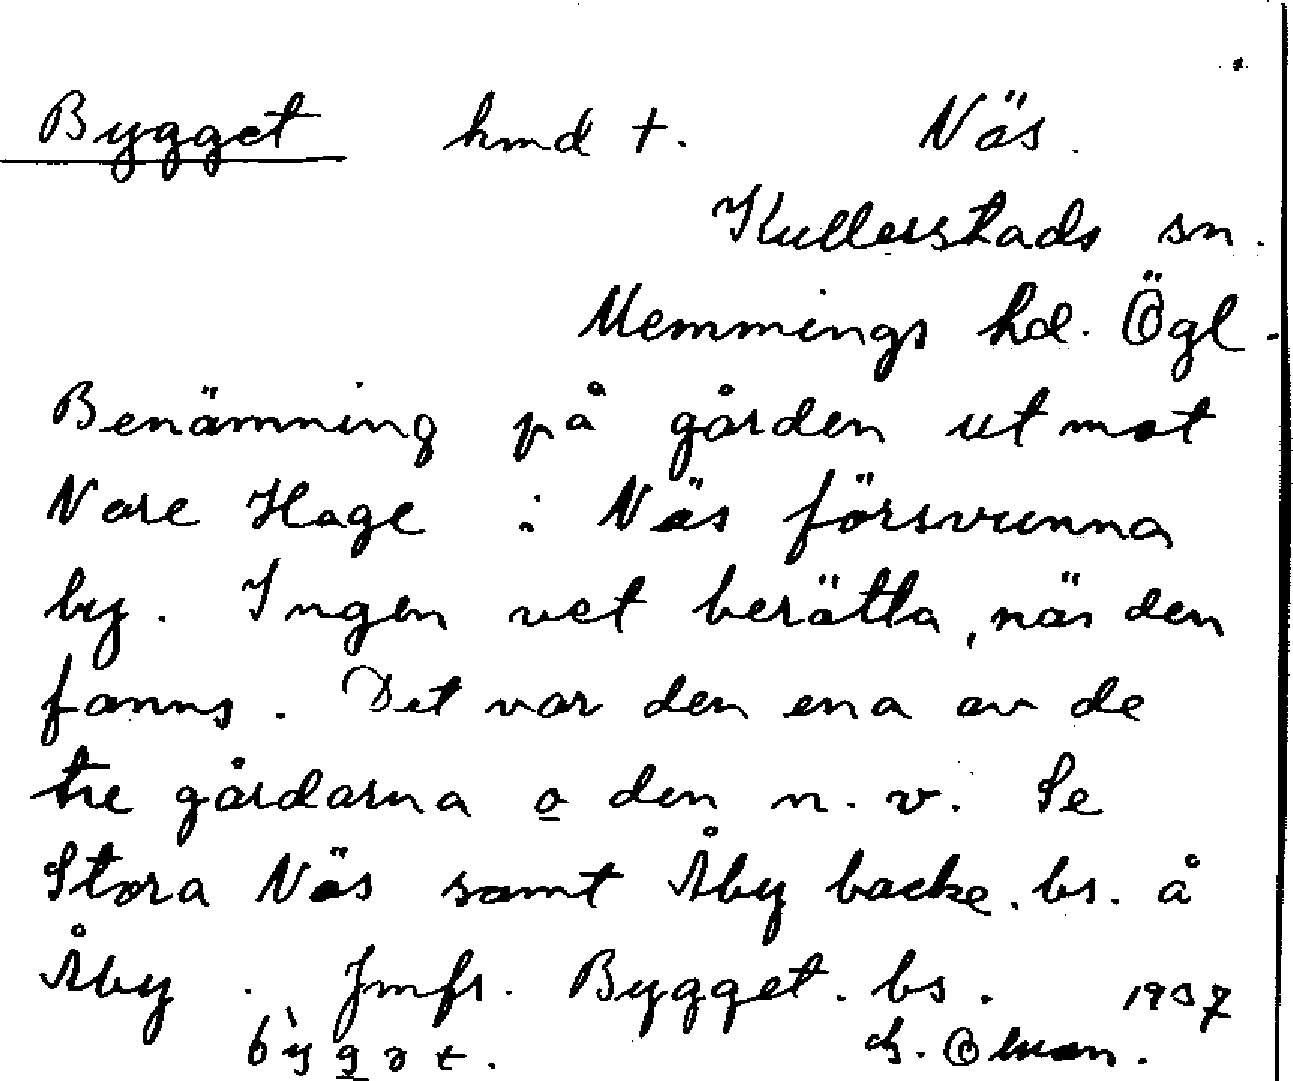 Bygget hmd †. Näs.
Kullerstads sn.
Memmings hd. Ögl.
Benämning på gården ut mot
Nare Hage i Näs försvunna
by. Ingen vet berätta, när den
fanns. Det var den ena av de
tre gårdarna o den n. v. Se
Stora Näs samt Åby backe. bs. å
Åby. Jmfr. Bygget. bs. 1937